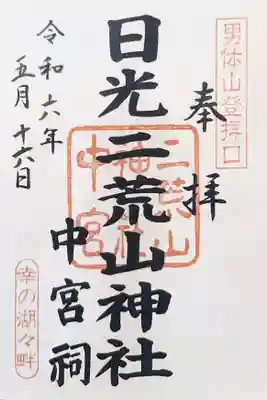 男体山登拝口
奉拝
日光二荒山神社
中宮祠
二荒山
中宮
令和六年
五月十六日
幸の湖々畔